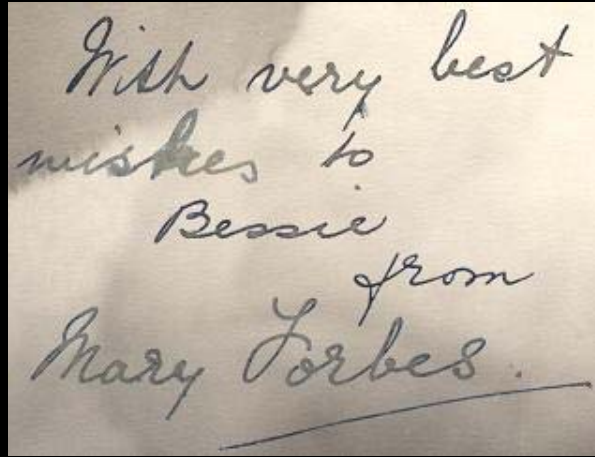 With very best
wishes to
Bessie
from
Mary Forbes.